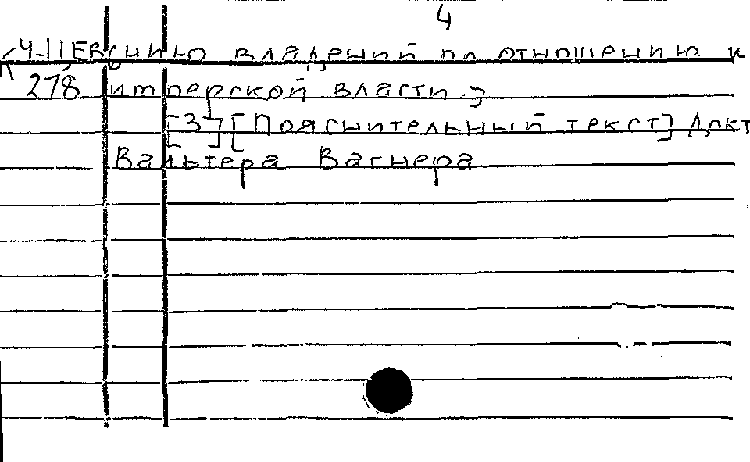 4
Ч-IIЕв динию владений по отношению к
278 имперской власти;
[3] [Пояснительный текст] Докт
Вальтера Вагнера